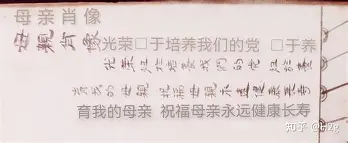 母亲肖像
母親肖像
光荣□于培养我们的党 □于养
光荣归于培养我们的党 归于养
育我的母亲 祝福母亲永远健康长寿
育我的母亲 祝福母亲永远健康长寿
知乎